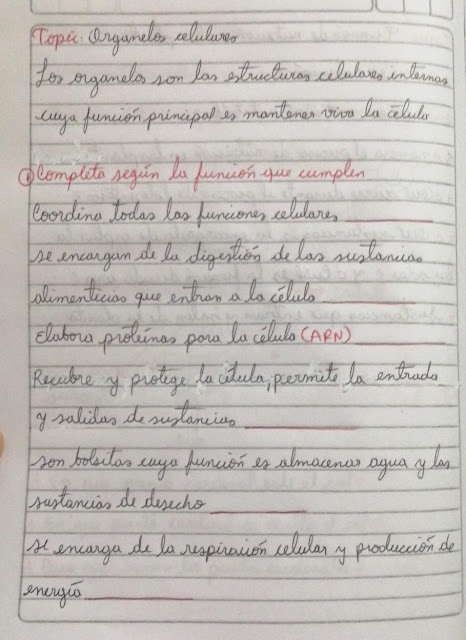 Topic: Organelos celulares
Los organelos son las estructuras celulares internas
cuya función principal es mantener viva la célula
① Completa según la función que cumplen
Coordina todas las funciones celulares
se encargan de la digestión de las sustancias
alimenticias que entran a la célula
Elabora proteínas para la célula (ARN)
Recubre y protege la célula, permite la entrada
y salidas de sustancias
son bolsitas cuya función es almacenar agua y las
sustancias de desecho
se encarga de la respiración celular y producción de
energía